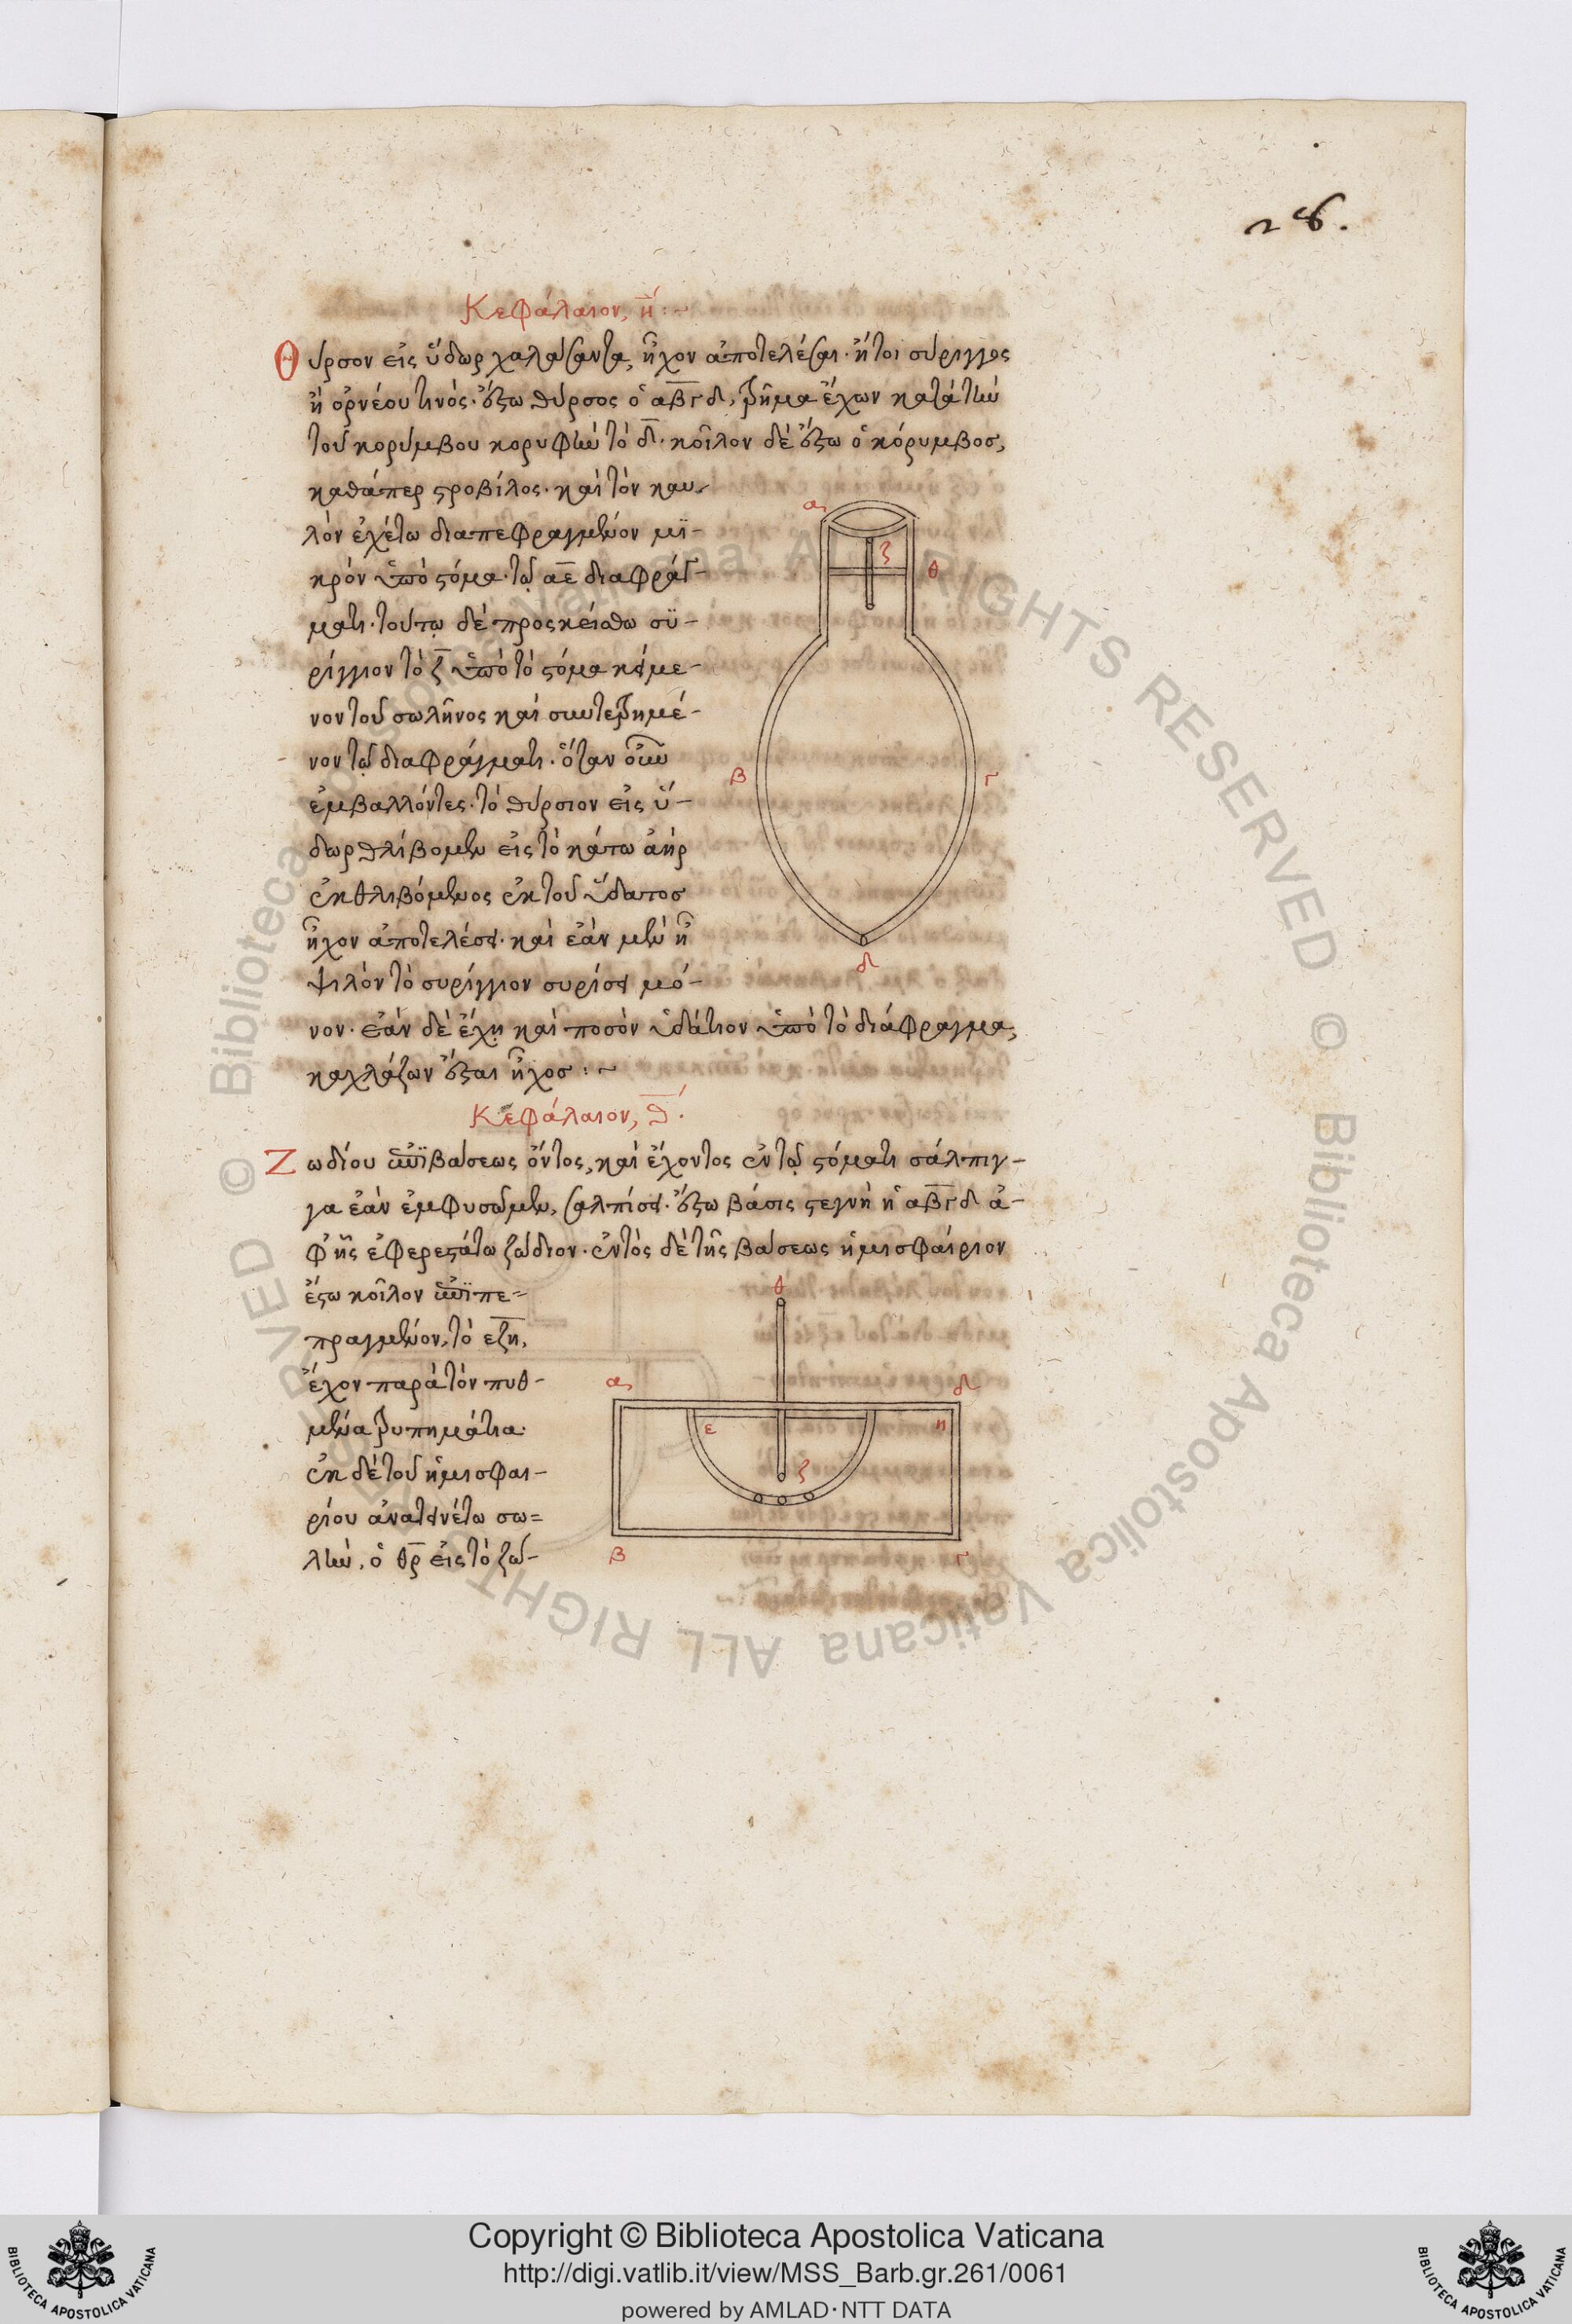 28.
Κεφάλαιον, η΄:~
Θύρσον εἰς ὕδωρ χαλάσαντα, ἦχον ἀποτελέσαι· ἤτοι σύριγγος
ἢ ὀρνέου τινός· ἔστω θύρσος ὁ αβγδ, τρῆμα ἔχων κατὰ τὴν
τοῦ κορύμβου κορυφὴν τὸ δ· κοῖλον δὲ ἔστω ὁ κόρυμβος,
καθάπερ στροβίλος· καὶ τὸν καυ-
λὸν ἐχέτω διαπεφραγμένον μϊ-
κρὸν ὑπὸ στόμα· τῷ αε διαφράγ-
ματι· τούτῳ δὲ προσκείσθω συ-
ρίγγιον τὸ ζ ὑπὸ τὸ στόμα κείμε-
νον τοῦ σωλῆνος καὶ συντετρημέ-
νον τῷ διαφράγματι· ὅταν οὖν
ἐμβαλλόντες· τὸ θύρσιον εἰς ὕ-
δωρ θλίβομεν εἰς τὸ κάτω ἀὴρ
ἐκθλιβόμενος ἐκ τοῦ ὕδατος
ἦχον ἀποτελέσει· καὶ ἐὰν μὲν ᾖ
ψιλὸν τὸ συρίγγιον συρίσει μό-
νον· ἐὰν δὲ ἔχῃ καὶ ποσὸν ὑδάτιον ὑπὸ τὸ διάφραγμα,
καχλάζων ἔσται ἦχος:~
α
ζ
θ
β
γ
δ
Κεφάλαιον, θ΄.
Ζωδίου ἐπὶ βάσεως ὄντος, καὶ ἔχοντος ἐν τῷ στόματι σάλπιγ-
γα ἐὰν ἐμφυσῶμεν, σαλπίσει· ἔστω βάσις στεγνὴ ἡ αβγδ ἀ-
φ᾽ ἧς ἐφερεστάτω ζώδιον· ἐντὸς δὲ τῆς βάσεως ἡμισφαίριον
ἔστω κοῖλον ἐπιπε-
πραγμένον, τὸ εζη,
ἔχον παρὰ τὸν πυθ-
μένα τρυπημάτια·
ἐκ δὲ τοῦ ἡμισφαι-
ρίου ἀνατεινέτω σω-
λὴν, ὁ θρ εἰς τὸ ζώ-
θ
α
δ
ε
η
ζ
β
γ
© Biblioteca Apostolica Vaticana ALL RIGHTS RESERVED © Biblioteca Apostolica Vaticana ALL RIGHTS RESERVED
BIBLIOTECA APOSTOLICA VATICANA
Copyright © Biblioteca Apostolica Vaticana
http://digi.vatlib.it/view/MSS_Barb.gr.261/0061
powered by AMLAD·NTT DATA
BIBLIOTECA APOSTOLICA VATICANA